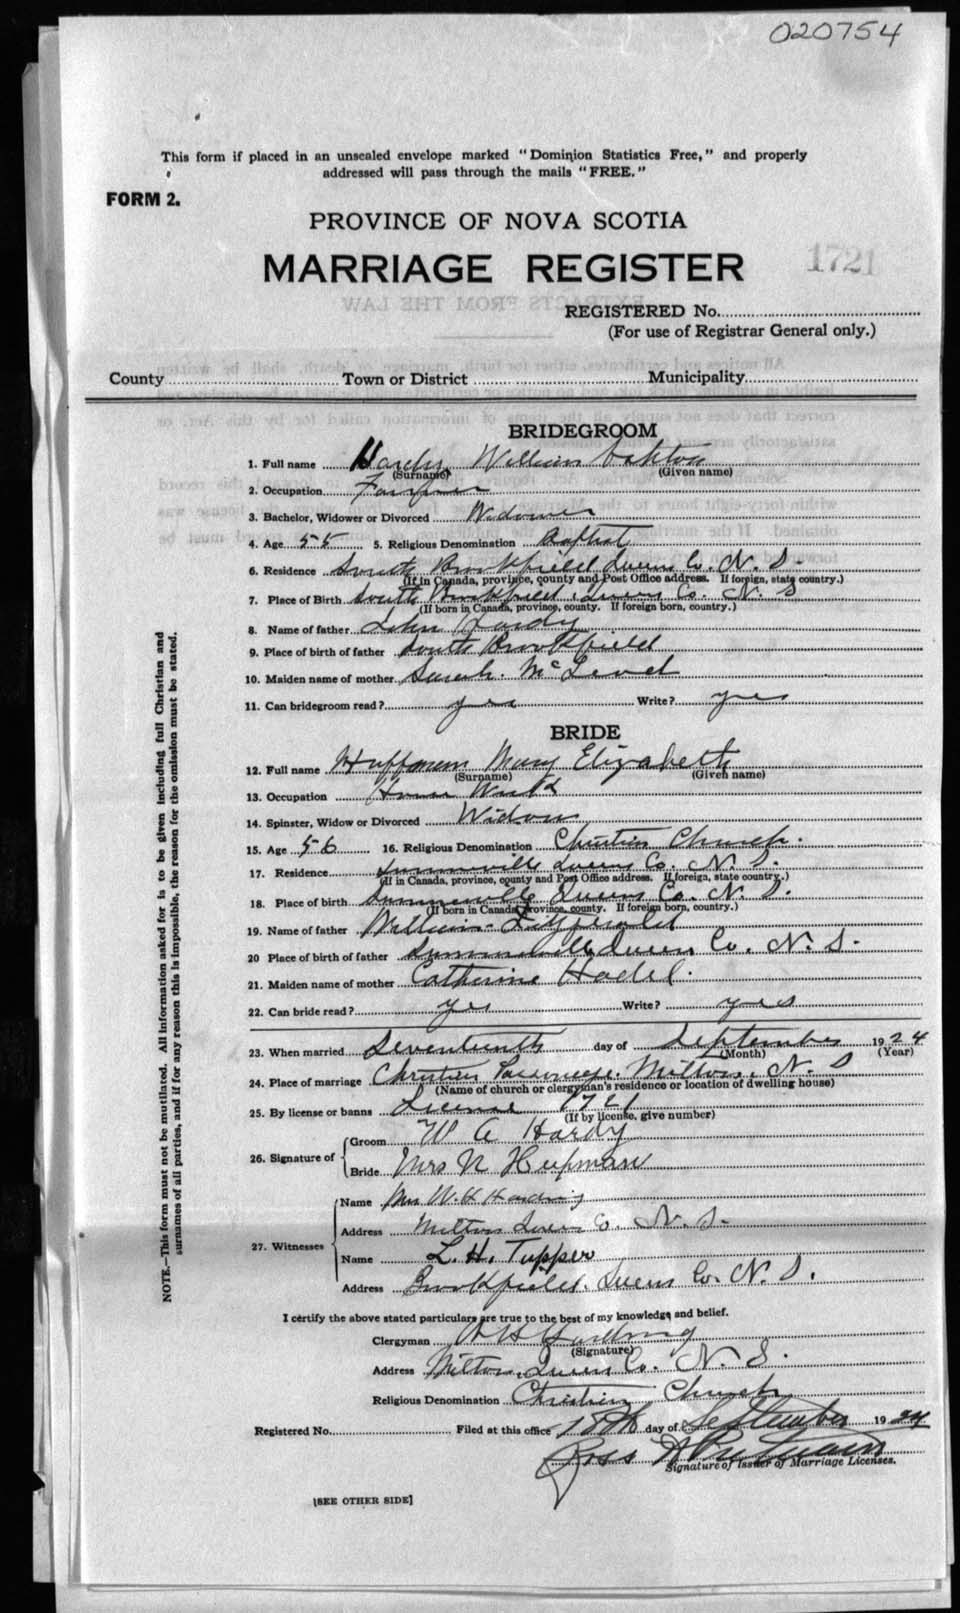 020754
This form if placed in an unsealed envelope marked "Dominion Statistics Free," and properly
addressed will pass through the mails "FREE."
FORM 2.
PROVINCE OF NOVA SCOTIA
MARRIAGE REGISTER
1721
REGISTERED No.
(For use of Registrar General only.)
County Town or District Municipality
BRIDEGROOM
1. Full name Hardy William
(Surname) (Given name)
2. Occupation Farmer
3. Bachelor, Widower or Divorced Widower
4. Age 55 5. Religious Denomination Baptist
6. Residence South Brookfield Queens Co. N. S.
(If in Canada, province, county and Post Office address. If foreign, state country.)
7. Place of Birth South Brookfield, Queens Co. N. S
(If born in Canada, province, county. If foreign born, country.)
8. Name of father John Hardy
9. Place of birth of father South Brookfield
10. Maiden name of mother Sarah. McLeod
11. Can bridegroom read? yes Write? yes
BRIDE
12. Full name Huffman Mary Elizabeth
(Surname) (Given name)
13. Occupation House Work
14. Spinster, Widow or Divorced Widow
15. Age 56 16. Religious Denomination Christian Church.
17. Residence Summerville Queens Co. N. S.
(If in Canada, province, county and Post Office address. If foreign, state country.)
18. Place of birth Summerville Queens Co. N. S.
(If born in Canada, province, county. If foreign born, country.)
19. Name of father William Fitzgerald
20 Place of birth of father Summerville Queens Co. N. S.
21. Maiden name of mother Catherine
22. Can bride read? yes Write? yes
23. When married Seventeenth day of September 1924
(Month) (Year)
24. Place of marriage Christian Parsonage. Milton. N. S
(Name of church or clergyman's residence or location of dwelling house)
25. By license or banns License 1721
(If by license, give number)
26. Signature of Groom W A Hardy
Bride Mrs N Hupman
27. Witnesses Name Mrs W. H Harding
Address Milton Queens Co. N. S.
Name L. H. Tupper
Address Brookfield. Queens Co. N. S.
I certify the above stated particulars are true to the best of my knowledge and belief.
Clergyman W H Harding
(Signature)
Address Milton, Queens Co. N. S.
Religious Denomination Christian Church
Registered No. Filed at this office 18th day of September 1924
Ross
Signature of Issuer of Marriage Licenses.
[SEE OTHER SIDE]
NOTE.—This form must not be mutilated. All information asked for is to be given including full Christian and
surnames of all parties, and if for any reason this is impossible, the reason for the omission must be stated.